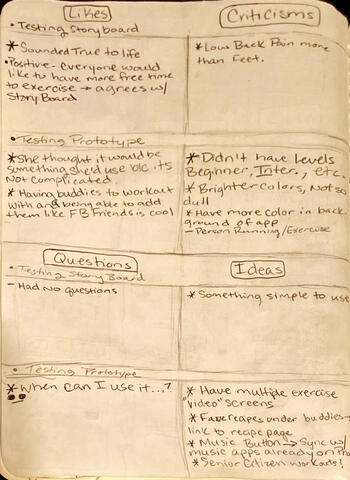 Likes
• Testing Storyboard
* Sounded True to life
• Positive - Everyone would
like to have more free time
to exercise → agrees w/
Story Board
Criticisms
* Low Back Pain more
than feet.
• Testing Prototype
* She thought it would be
something she'd use b/c its
Not complicated
* Having buddies to workout
with and being able to add
them like FB Friends is cool
* Didn't have Levels
Beginner, Inter., etc.
* Brighter Colors, Not so
dull
* Have more color in back-
ground of app
- Person Running/Exercise
Questions
• Testing Story Board
- Had No questions
Ideas
* Something simple to use
• Testing Prototype
* When can I use it...?
* Have multiple exercise
"video" screens
* Fave recapes under buddies→
link to recipe page
* Music Button → Sync w/
music apps already on
* Senior Citizen workouts!